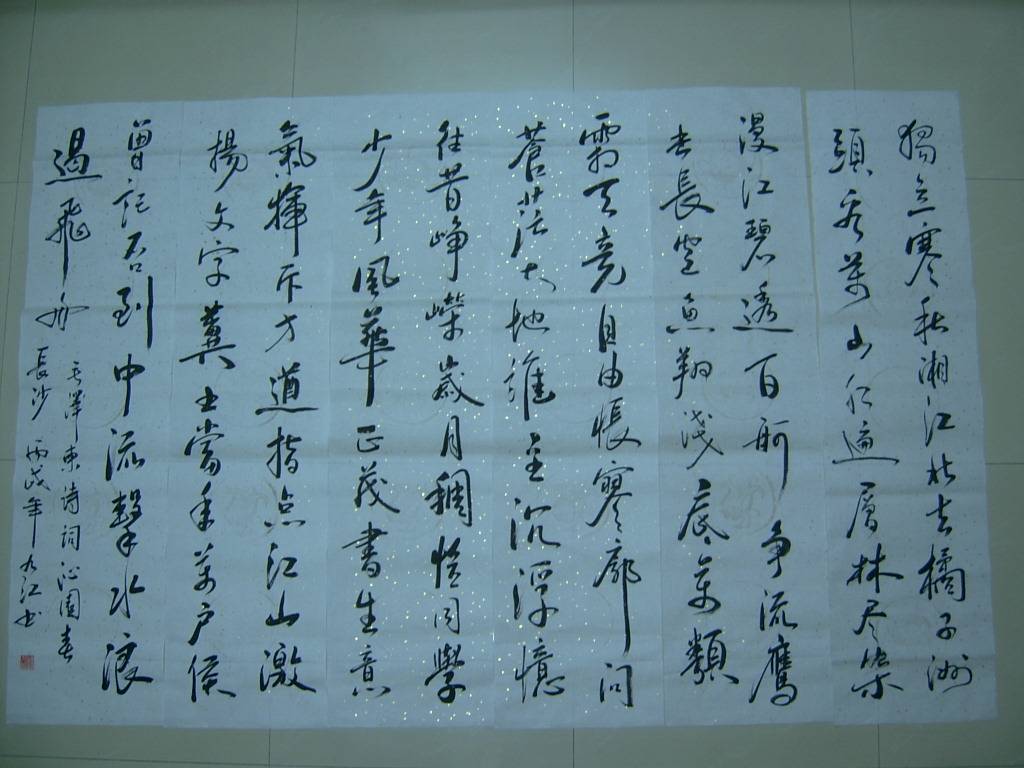 獨立寒秋湘江北去橘子洲
頭看萬山红遍層林尽染
漫江碧透百舸争流鷹
击長空魚翔浅底萬類
霜天竞自由悵寥廓问
蒼茫大地誰主沉浮憶
往昔崢嶸歲月稠恰同學
少年風華正茂書生意
氣揮斥方遒指点江山激
揚文字糞土當年萬户侯
曾记否到中流擊水浪
遏飛舟
毛澤東詩詞沁園春
長沙 丙戌年九江书